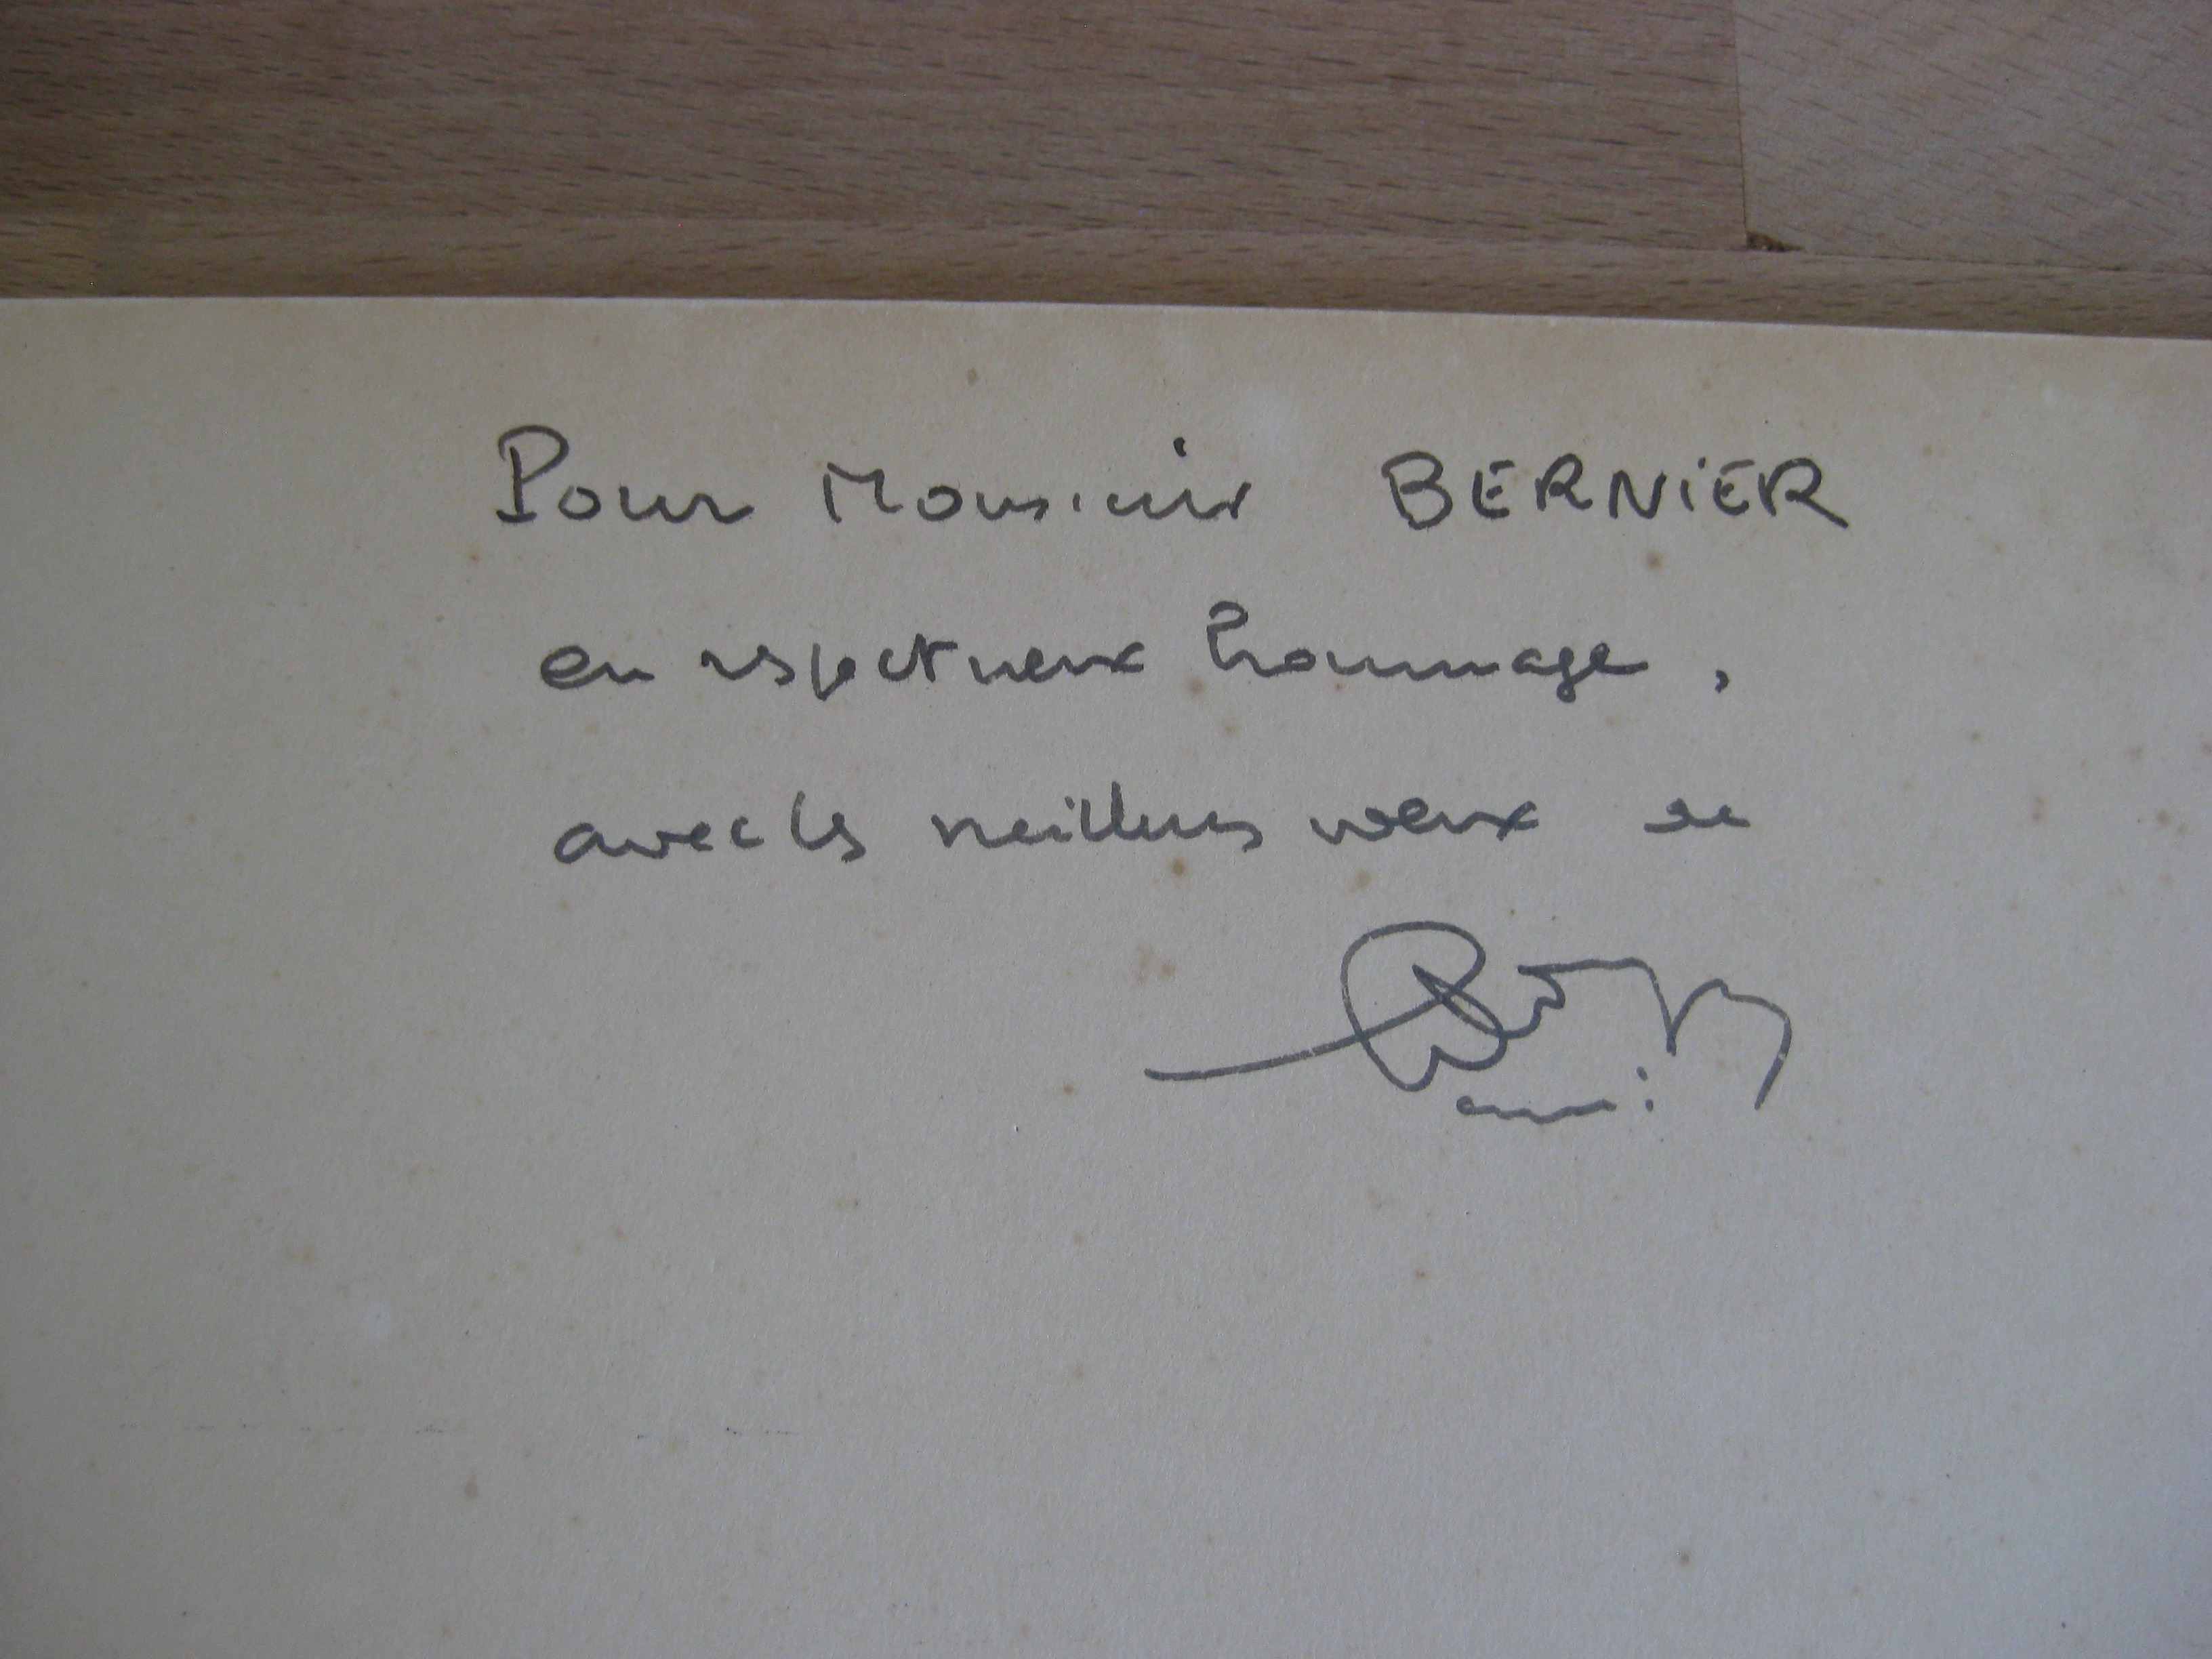 Pour Monsieur BERNIER
en respectueux hommage,
avec les meilleurs vœux de